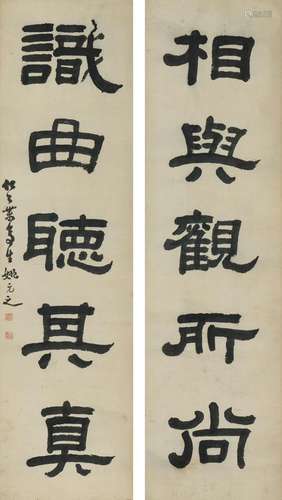 相與觀所尚
識曲聽其真
姚元之